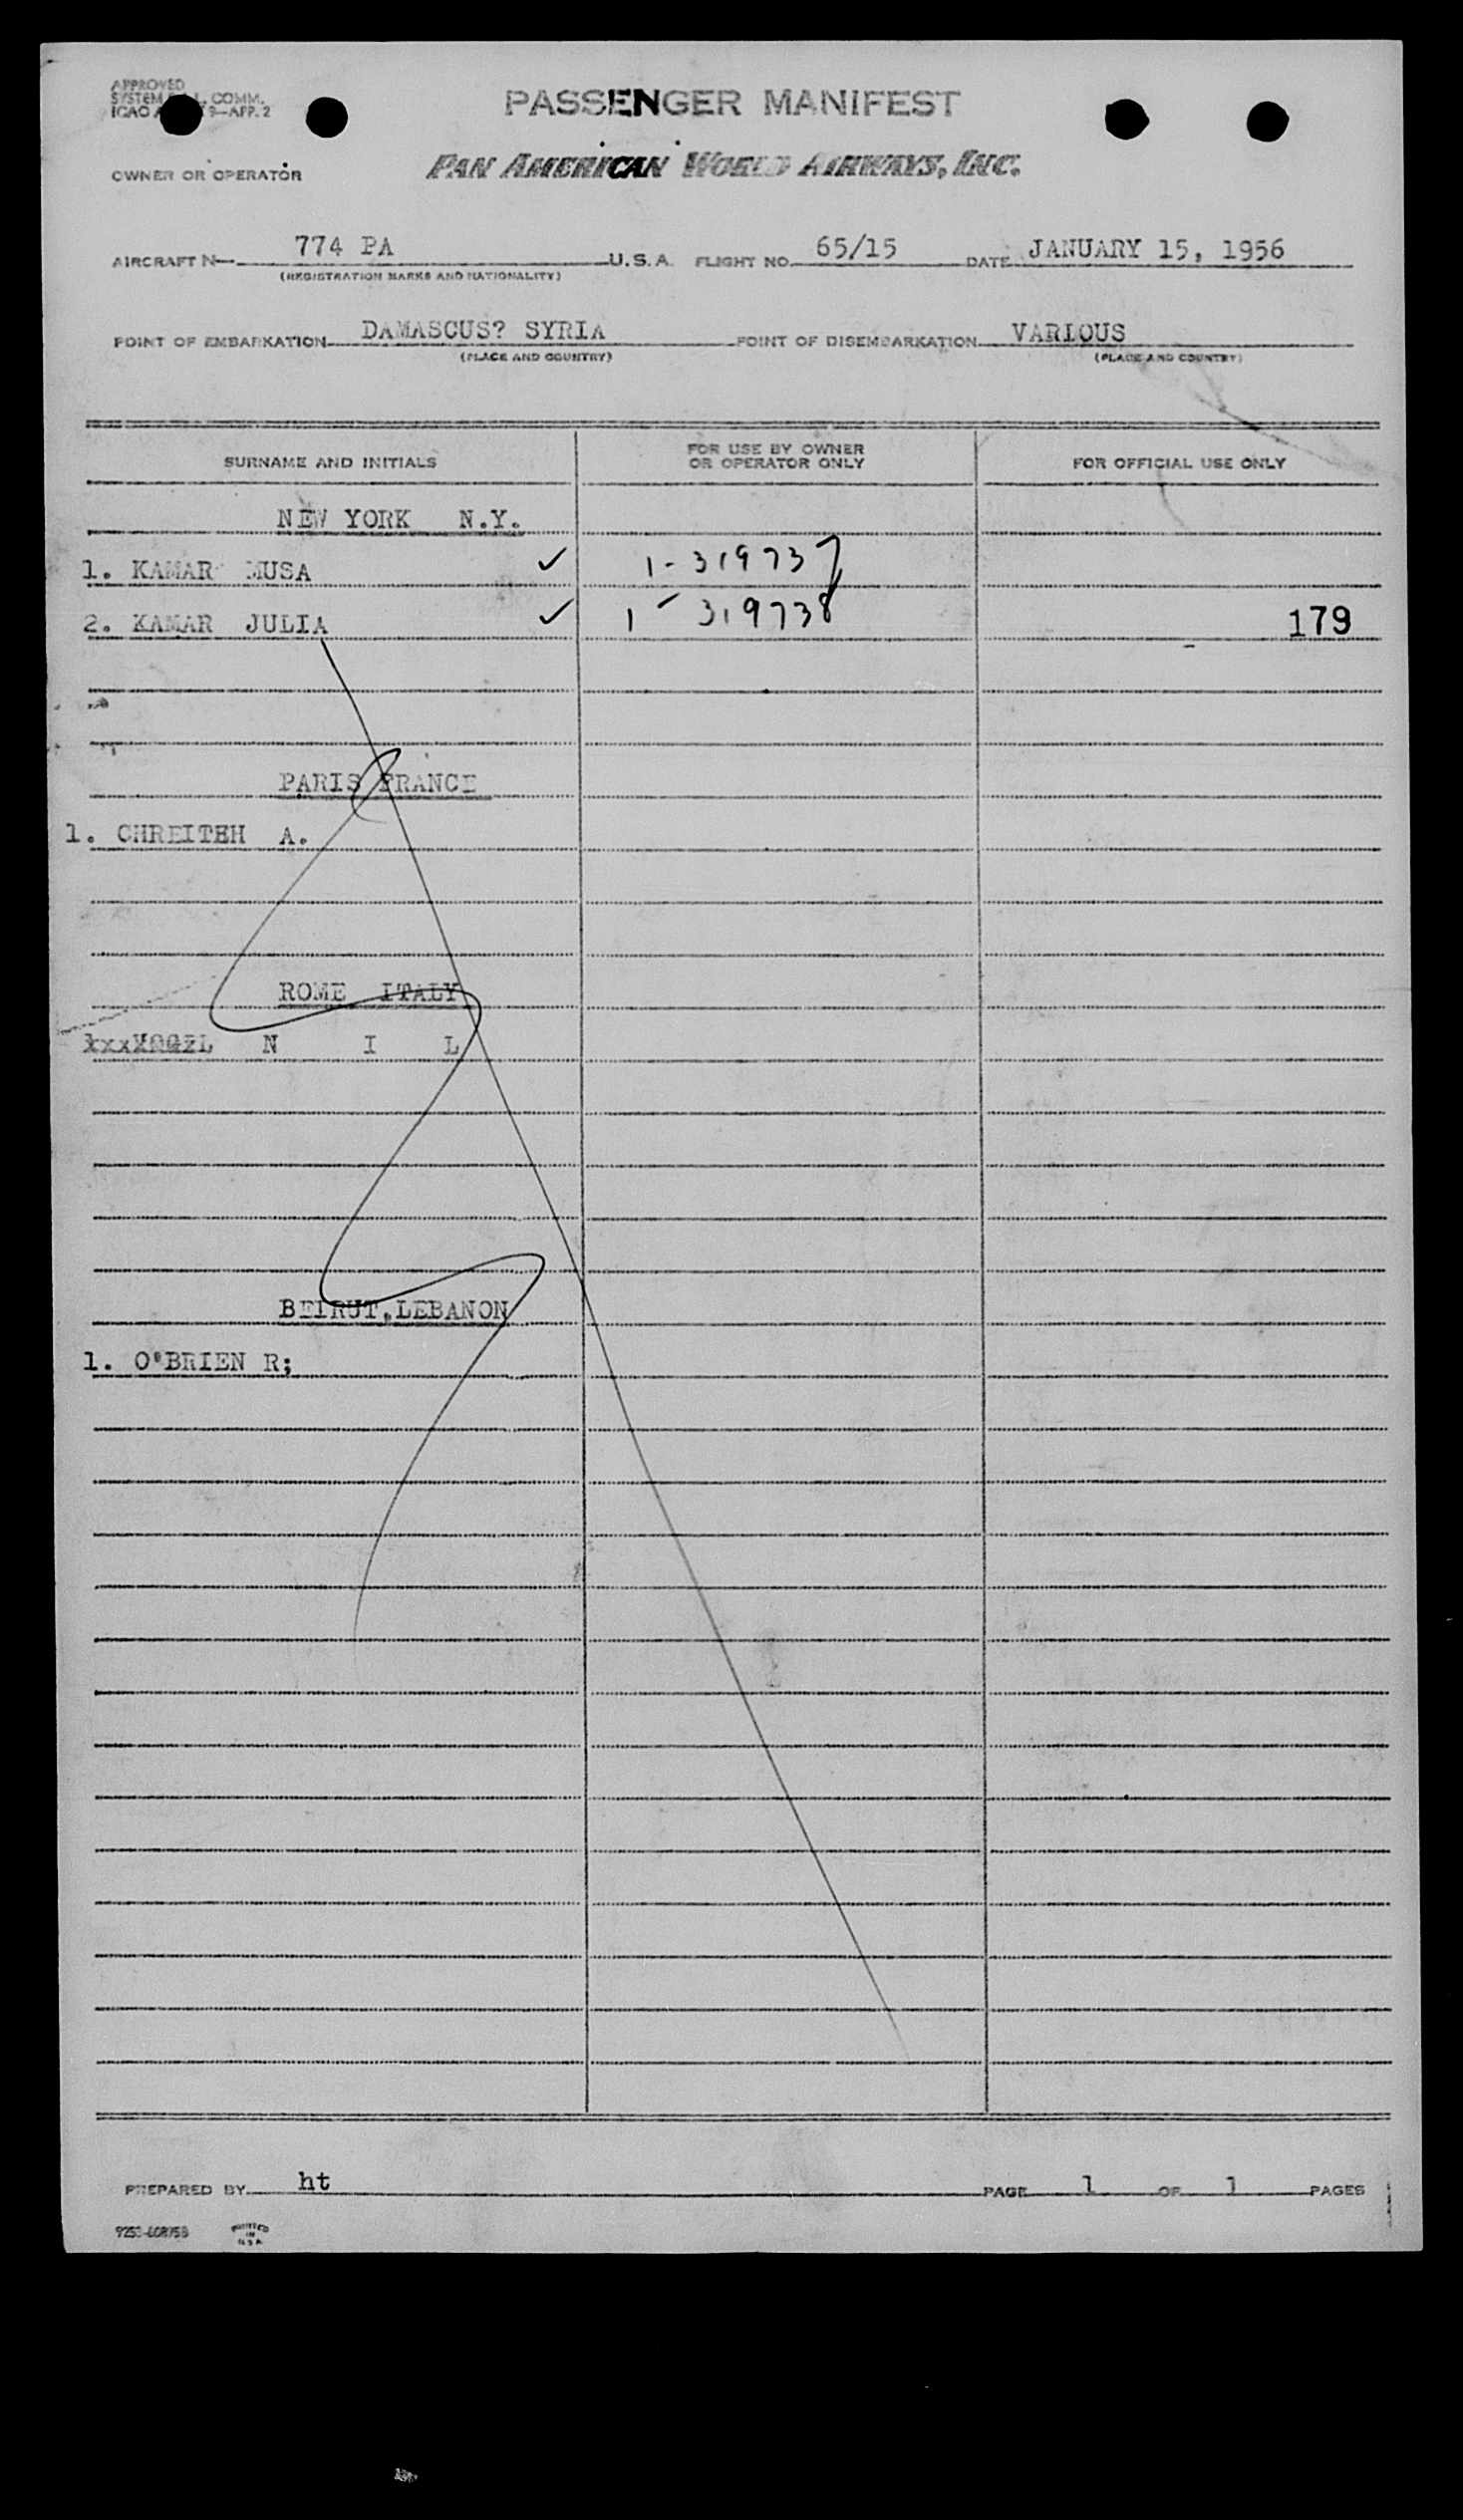 APPROVED
SYSTEM COMM.
ICAO 9—APP. 2
PASSENGER MANIFEST
OWNER OR OPERATOR PAN AMERICAN WORLD AIRWAYS, INC.
AIRCRAFT N— 774 PA U.S.A. FLIGHT NO. 65/15 DATE JANUARY 15, 1956
(REGISTRATION MARKS AND NATIONALITY)
POINT OF EMBARKATION DAMASCUS? SYRIA POINT OF DISEMBARKATION VARIOUS
(PLACE AND COUNTRY) (PLACE AND COUNTRY)
SURNAME AND INITIALS FOR USE BY OWNER OR OPERATOR ONLY FOR OFFICIAL USE ONLY
NEW YORK N.Y.
1. KAMAR MUSA ✓ 1-319737
2. KAMAR JULIA ✓ 1-319738 179
PARIS FRANCE
1. CHREITEH A.
ROME ITALY
N I L
BEIRUT, LEBANON
1. O'BRIEN R;
PREPARED BY ht PAGE 1 OF 1 PAGES
PRINTED
IN
U S A